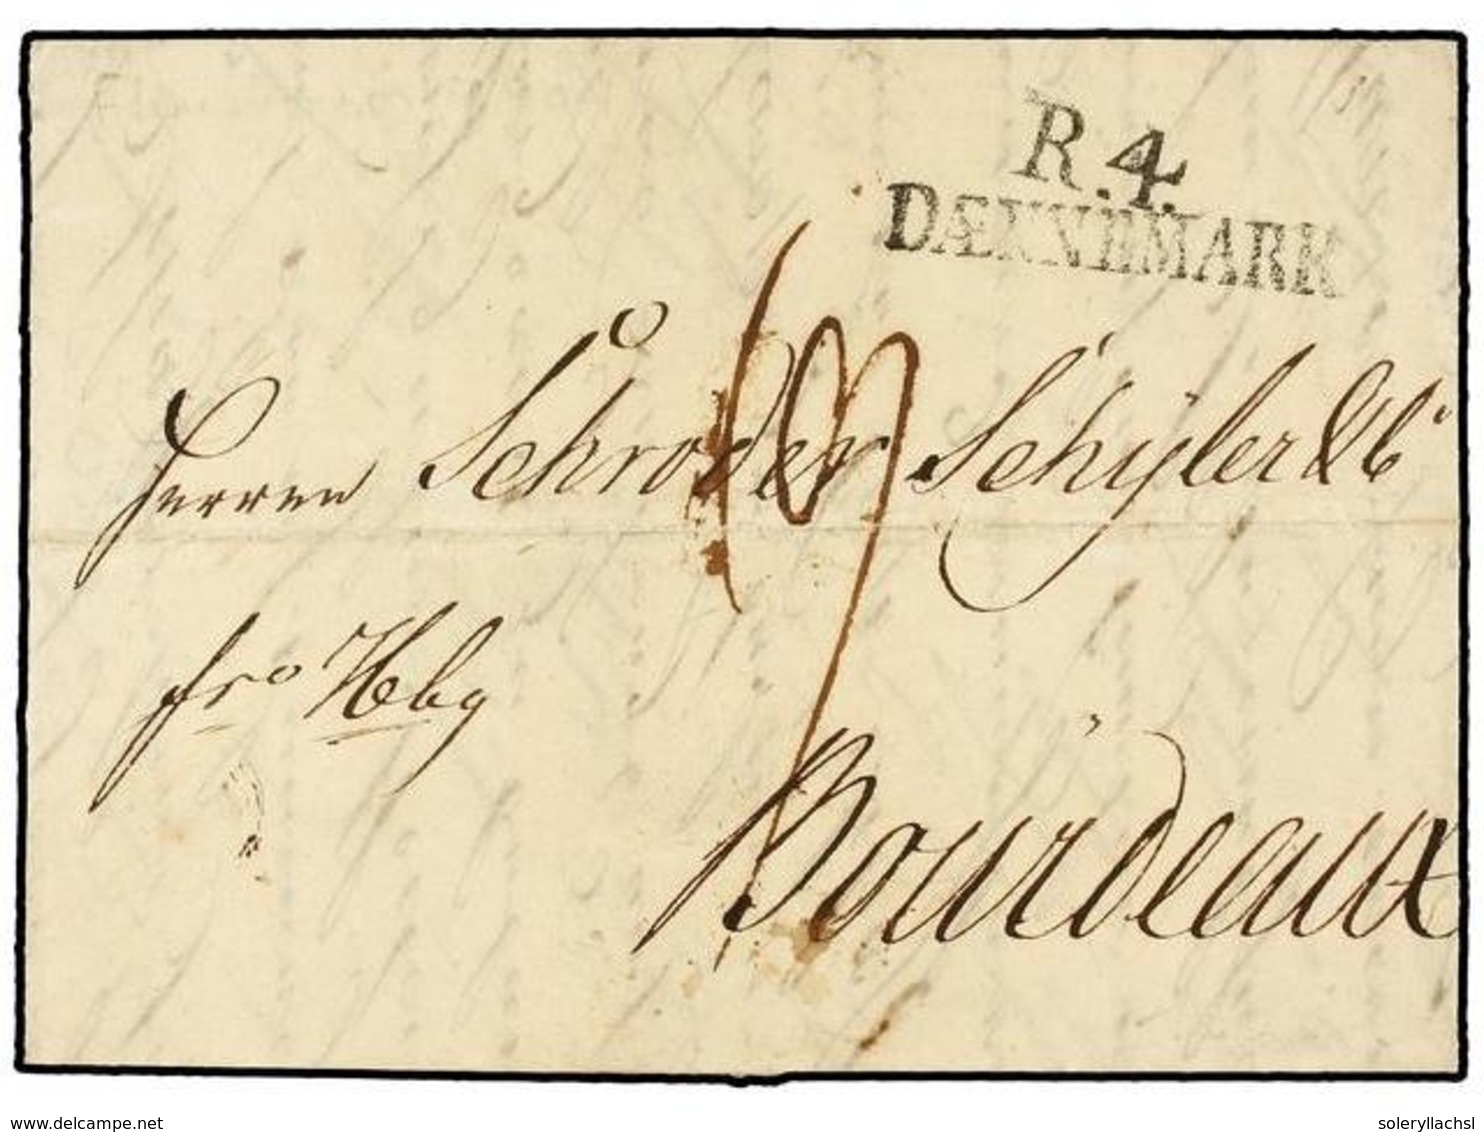 R.4.
DÆNNEMARK
Herren Schröder Schÿler & Cº
19
frº Hbg
Bourdeaux
www.delcampe.net
soleryllachsl